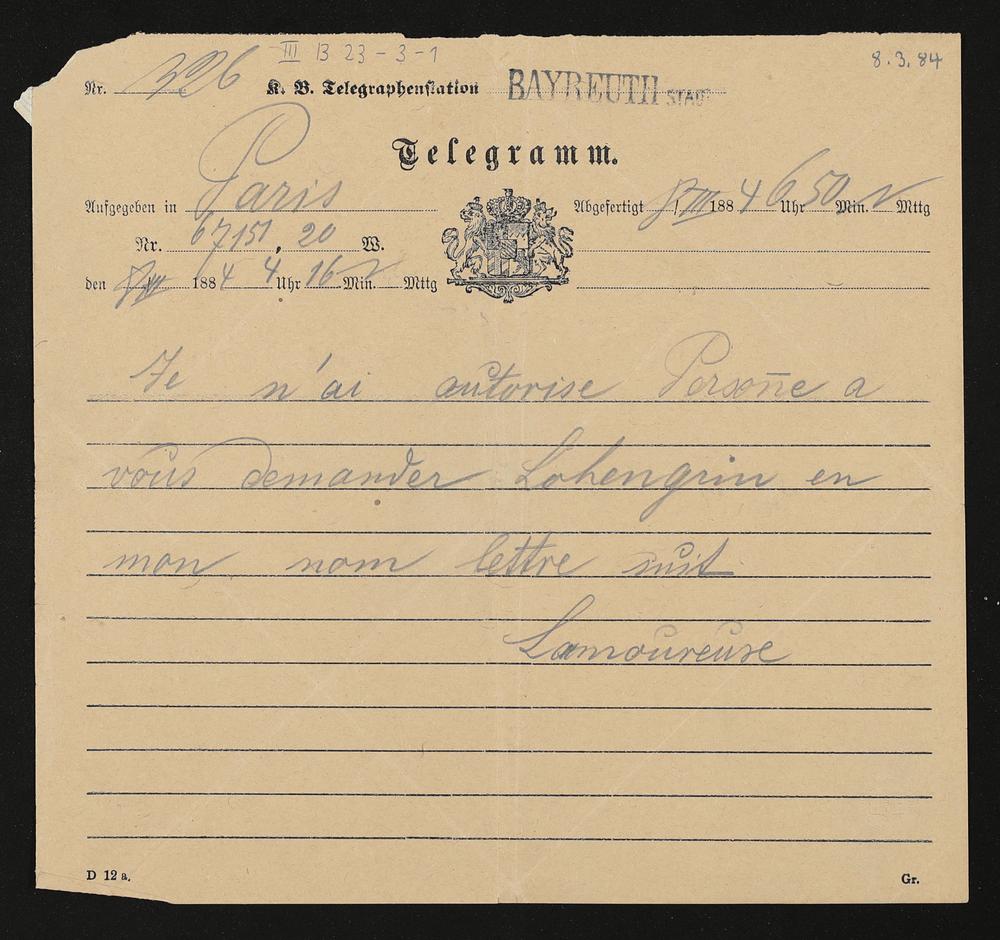 III B 23-3-1
8.3.84
Nr. 396 K. B. Telegraphenstation BAYREUTH STADT
Telegramm.
Aufgegeben in Paris
Abgefertigt 8/III 1884 6 Uhr 50 Min. N Mttg
Nr. 67151, 20 W.
den 8/III 1884 4 Uhr 16 Min. N Mttg
Je n'ai autorise Persone a
vous demander Lohengrin en
mon nom lettre suit
Lamoureuse
D 12 a.
Gr.